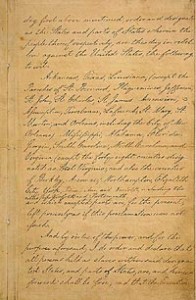 day first above mentioned, order and designate
as the States and parts of States wherein the
people thereof respectively, are this day in rebel-
lion against the United States, the following,
to wit:
Arkansas, Texas, Louisiana, (except the
Parishes of St. Bernard, Plaquemines, Jefferson,
St. John, St. Charles, St. James, Ascension,
Assumption, Terrebonne, Lafourche, St. Mary, St.
Martin, and Orleans, including the City of New
Orleans) Mississippi, Alabama, Florida,
Georgia, South Carolina, North Carolina, and
Virginia, (except the forty-eight counties desig-
nated as West Virginia, and also the counties
of Berkley, Accomac, Northampton, Elizabeth
City, York, Princess Ann, and Norfolk, including the
which excepted parts are, for the present,
left precisely as if this proclamation were not
issued.
And by virtue of the power, and for the
purpose aforesaid, I do order and declare that
all persons held as slaves within said designa-
ted States, and parts of States, are, and hence-
forward shall be free; and that the Executive